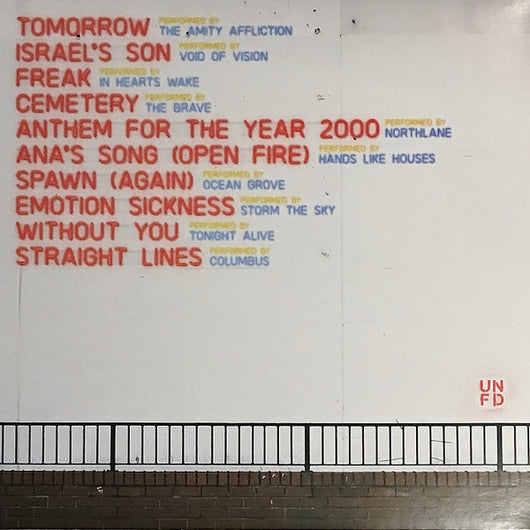 TOMORROW PERFORMED BY THE AMITY AFFLICTION
ISRAEL'S SON PERFORMED BY VOID OF VISION
FREAK PERFORMED BY IN HEARTS WAKE
CEMETERY PERFORMED BY THE BRAVE
ANTHEM FOR THE YEAR 2000 PERFORMED BY NORTHLANE
ANA'S SONG (OPEN FIRE) PERFORMED BY HANDS LIKE HOUSES
SPAWN (AGAIN) PERFORMED BY OCEAN GROVE
EMOTION SICKNESS PERFORMED BY STORM THE SKY
WITHOUT YOU PERFORMED BY TONIGHT ALIVE
STRAIGHT LINES PERFORMED BY COLUMBUS
UN
FD